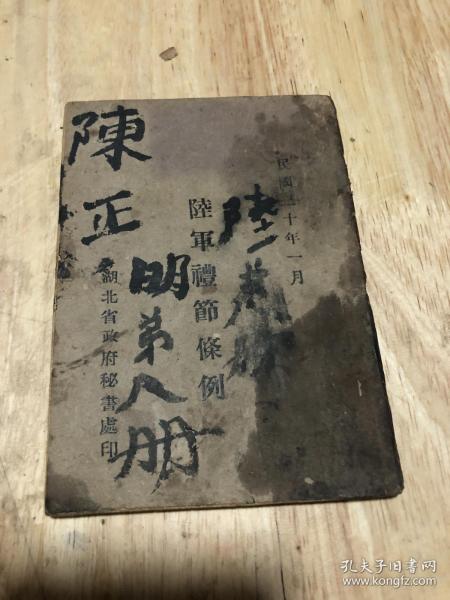 民國三十年一月
陸軍禮節條例
湖北省政府秘書處印
陳正明第八册
孔夫子旧书网
www.kongfz.com